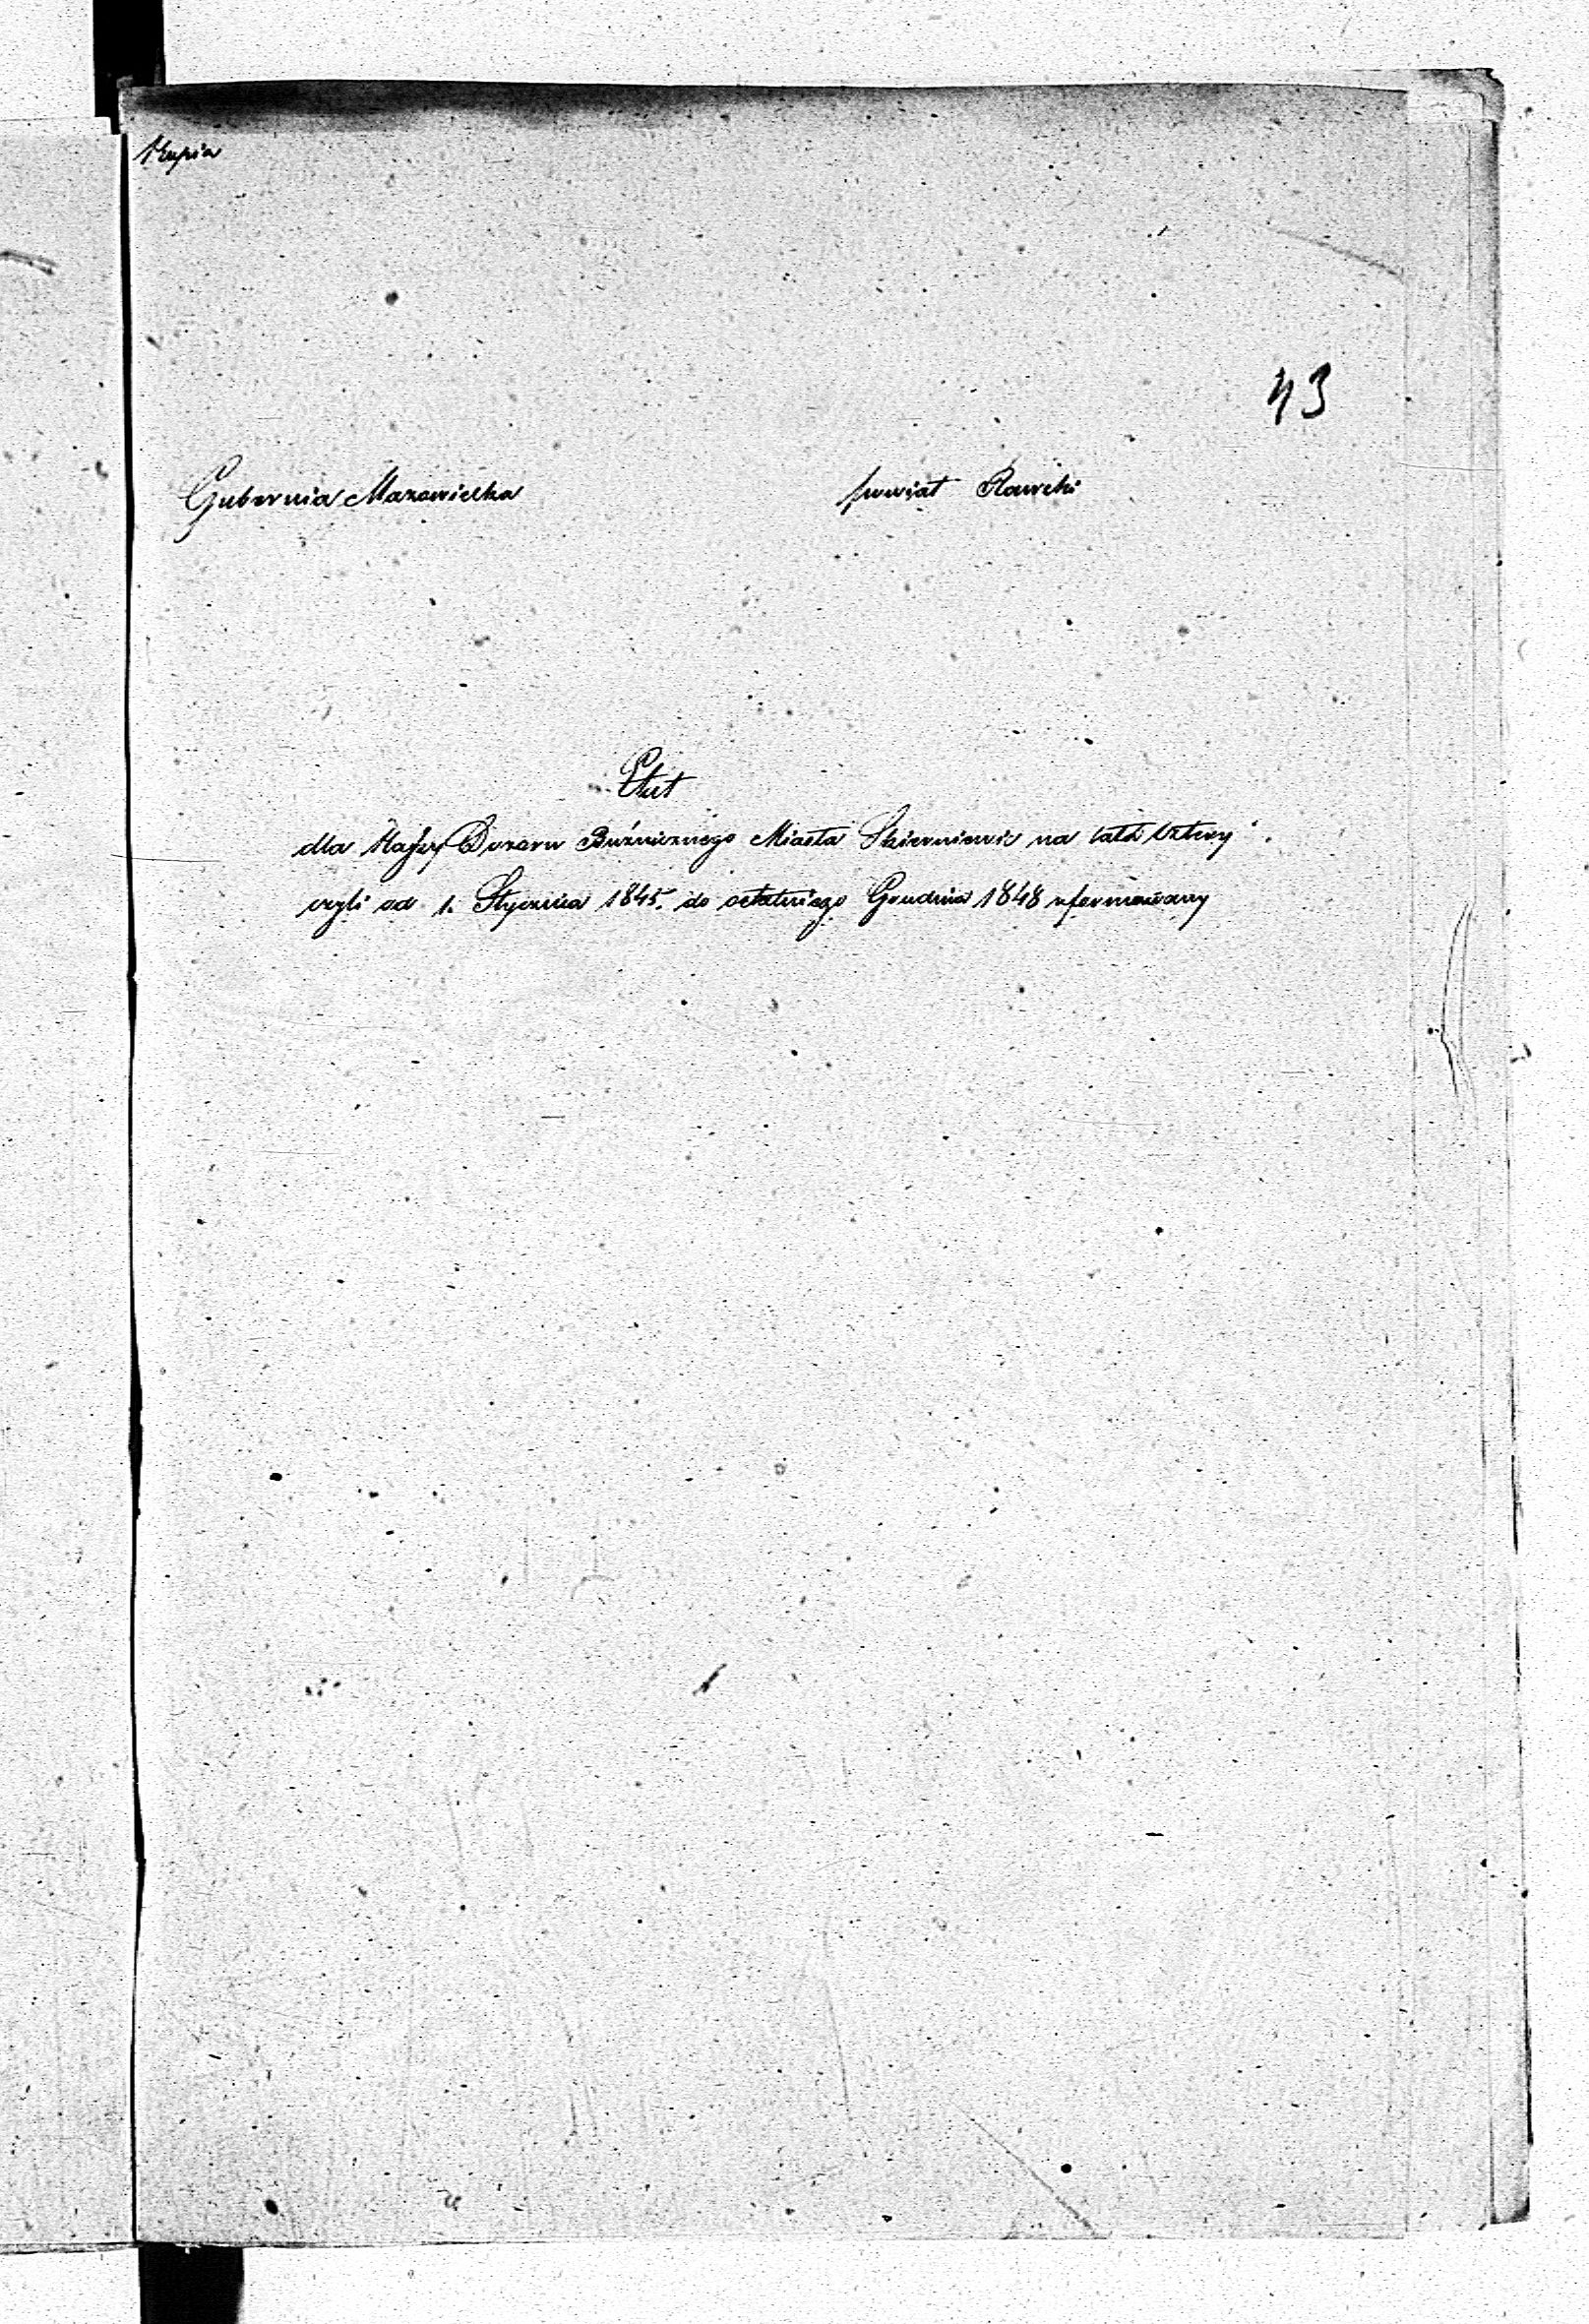 Kopia
43
Gubernia Mazowiecka powiat Rawski
Etat
dla Kassy Dozoru Bużniczego Miasta Skierniewic na lata cztery
czyli od 1. Stycznia 1845. do ostatniego Grudnia 1848 uformowany